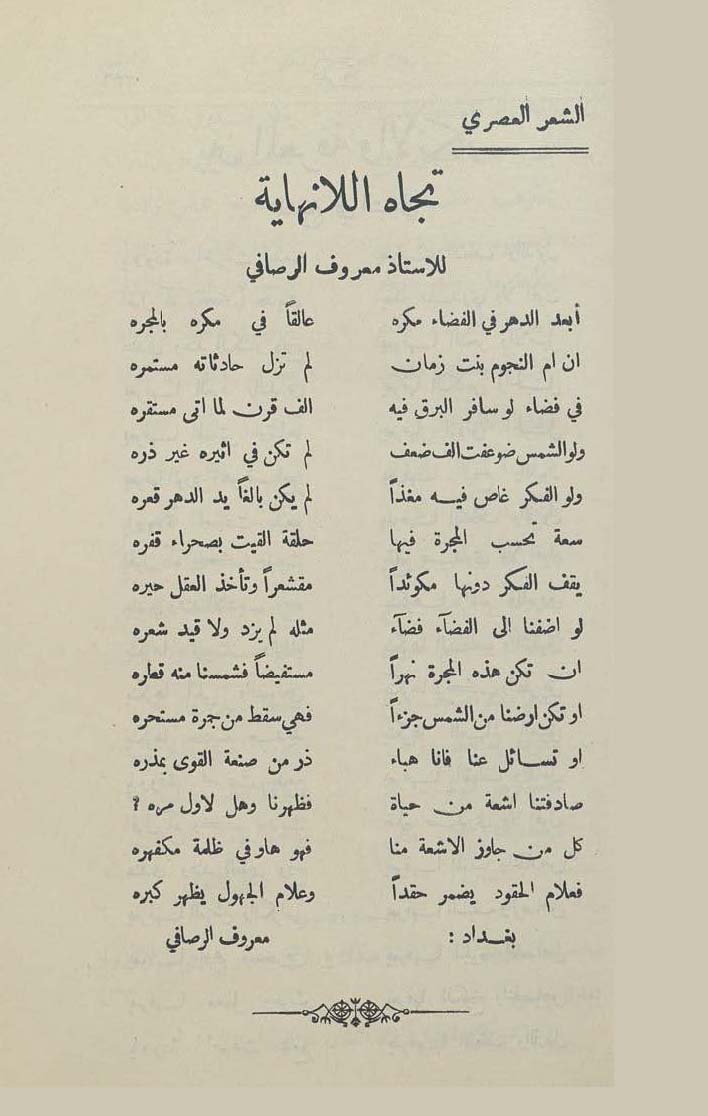 الشعر العصري
تجاه اللانهاية
للاستاذ معروف الرصافي
أبعد الدهر في الفضاء مكره عالقاً في مكره بالمجره
ان ام النجوم بنت زمان لم تزل حادثاته مستمره
في فضاء لو سافر البرق فيه الف قرن لما اتى مستقره
ولو الشمس ضوعفت الف ضعف لم تكن في اثيره غير ذره
ولو الفكر غاص فيه مغذاً لم يكن بالغاً يد الدهر قعره
سعة تحسب المجرة فيها حلقة القيت بصحراء قفره
يقف الفكر دونها مكوئداً مقشعراً وتأخذ العقل حيره
لو اضفنا الى الفضآء فضآء مثله لم يزد ولا قيد شعره
ان تكن هذه المجرة نهراً مستفيضاً فشمسنا منه قطره
او تكن ارضنا من الشمس جزءاً فهي سقط من جمرة مستحره
او تسائل عنا فانا هباء ذر من صنعة القوى بمذره
صادفتنا اشعة من حياة فظهرنا وهل لاول مره ؟
كل من جاوز الاشعة منا فهو هاو في ظلمة مكفهره
فعلام الحقود يضمر حقداً وعلام الجهول يظهر كبره
بغداد : معروف الرصافي